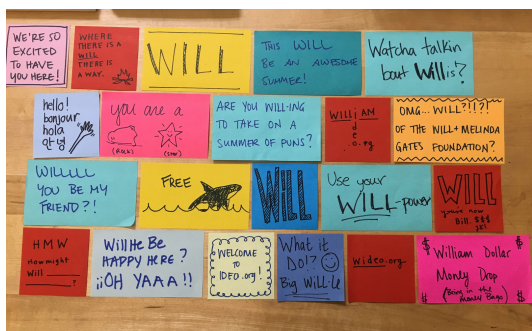 WE'RE SO
EXCITED
TO HAVE
YOU HERE!
WHERE
THERE IS A
WILL
THERE IS
A WAY.
WILL
THIS WILL
BE AN AWESOME
SUMMER!
Watcha talkin
bout Willis?
hello!
bonjour
hola
안녕
you are a
(ROCK)
(STAR)
ARE YOU WILL-ING
TO TAKE ON A
SUMMER OF PUNS?
WILLiAM
i
d
e
o.org
OMG... WILL?!?!?
OF THE WILL+MELINDA
GATES FOUNDATION?
WILLLLL
YOU BE MY
FRIEND?!
FREE
WILL
Use your
WILL-power
WILL
you're now
Bill. $$$
JK!
HMW
How might
Will ?
Will He Be
HAPPY HERE?
¡¡OH YAAA!!
WELCOME
TO
IDEO.org!
What it
Do!?
Big Will-le
Wideo.org
$ William Dollar $
Money Drop
(Bring in the
Money Bags)
$ $